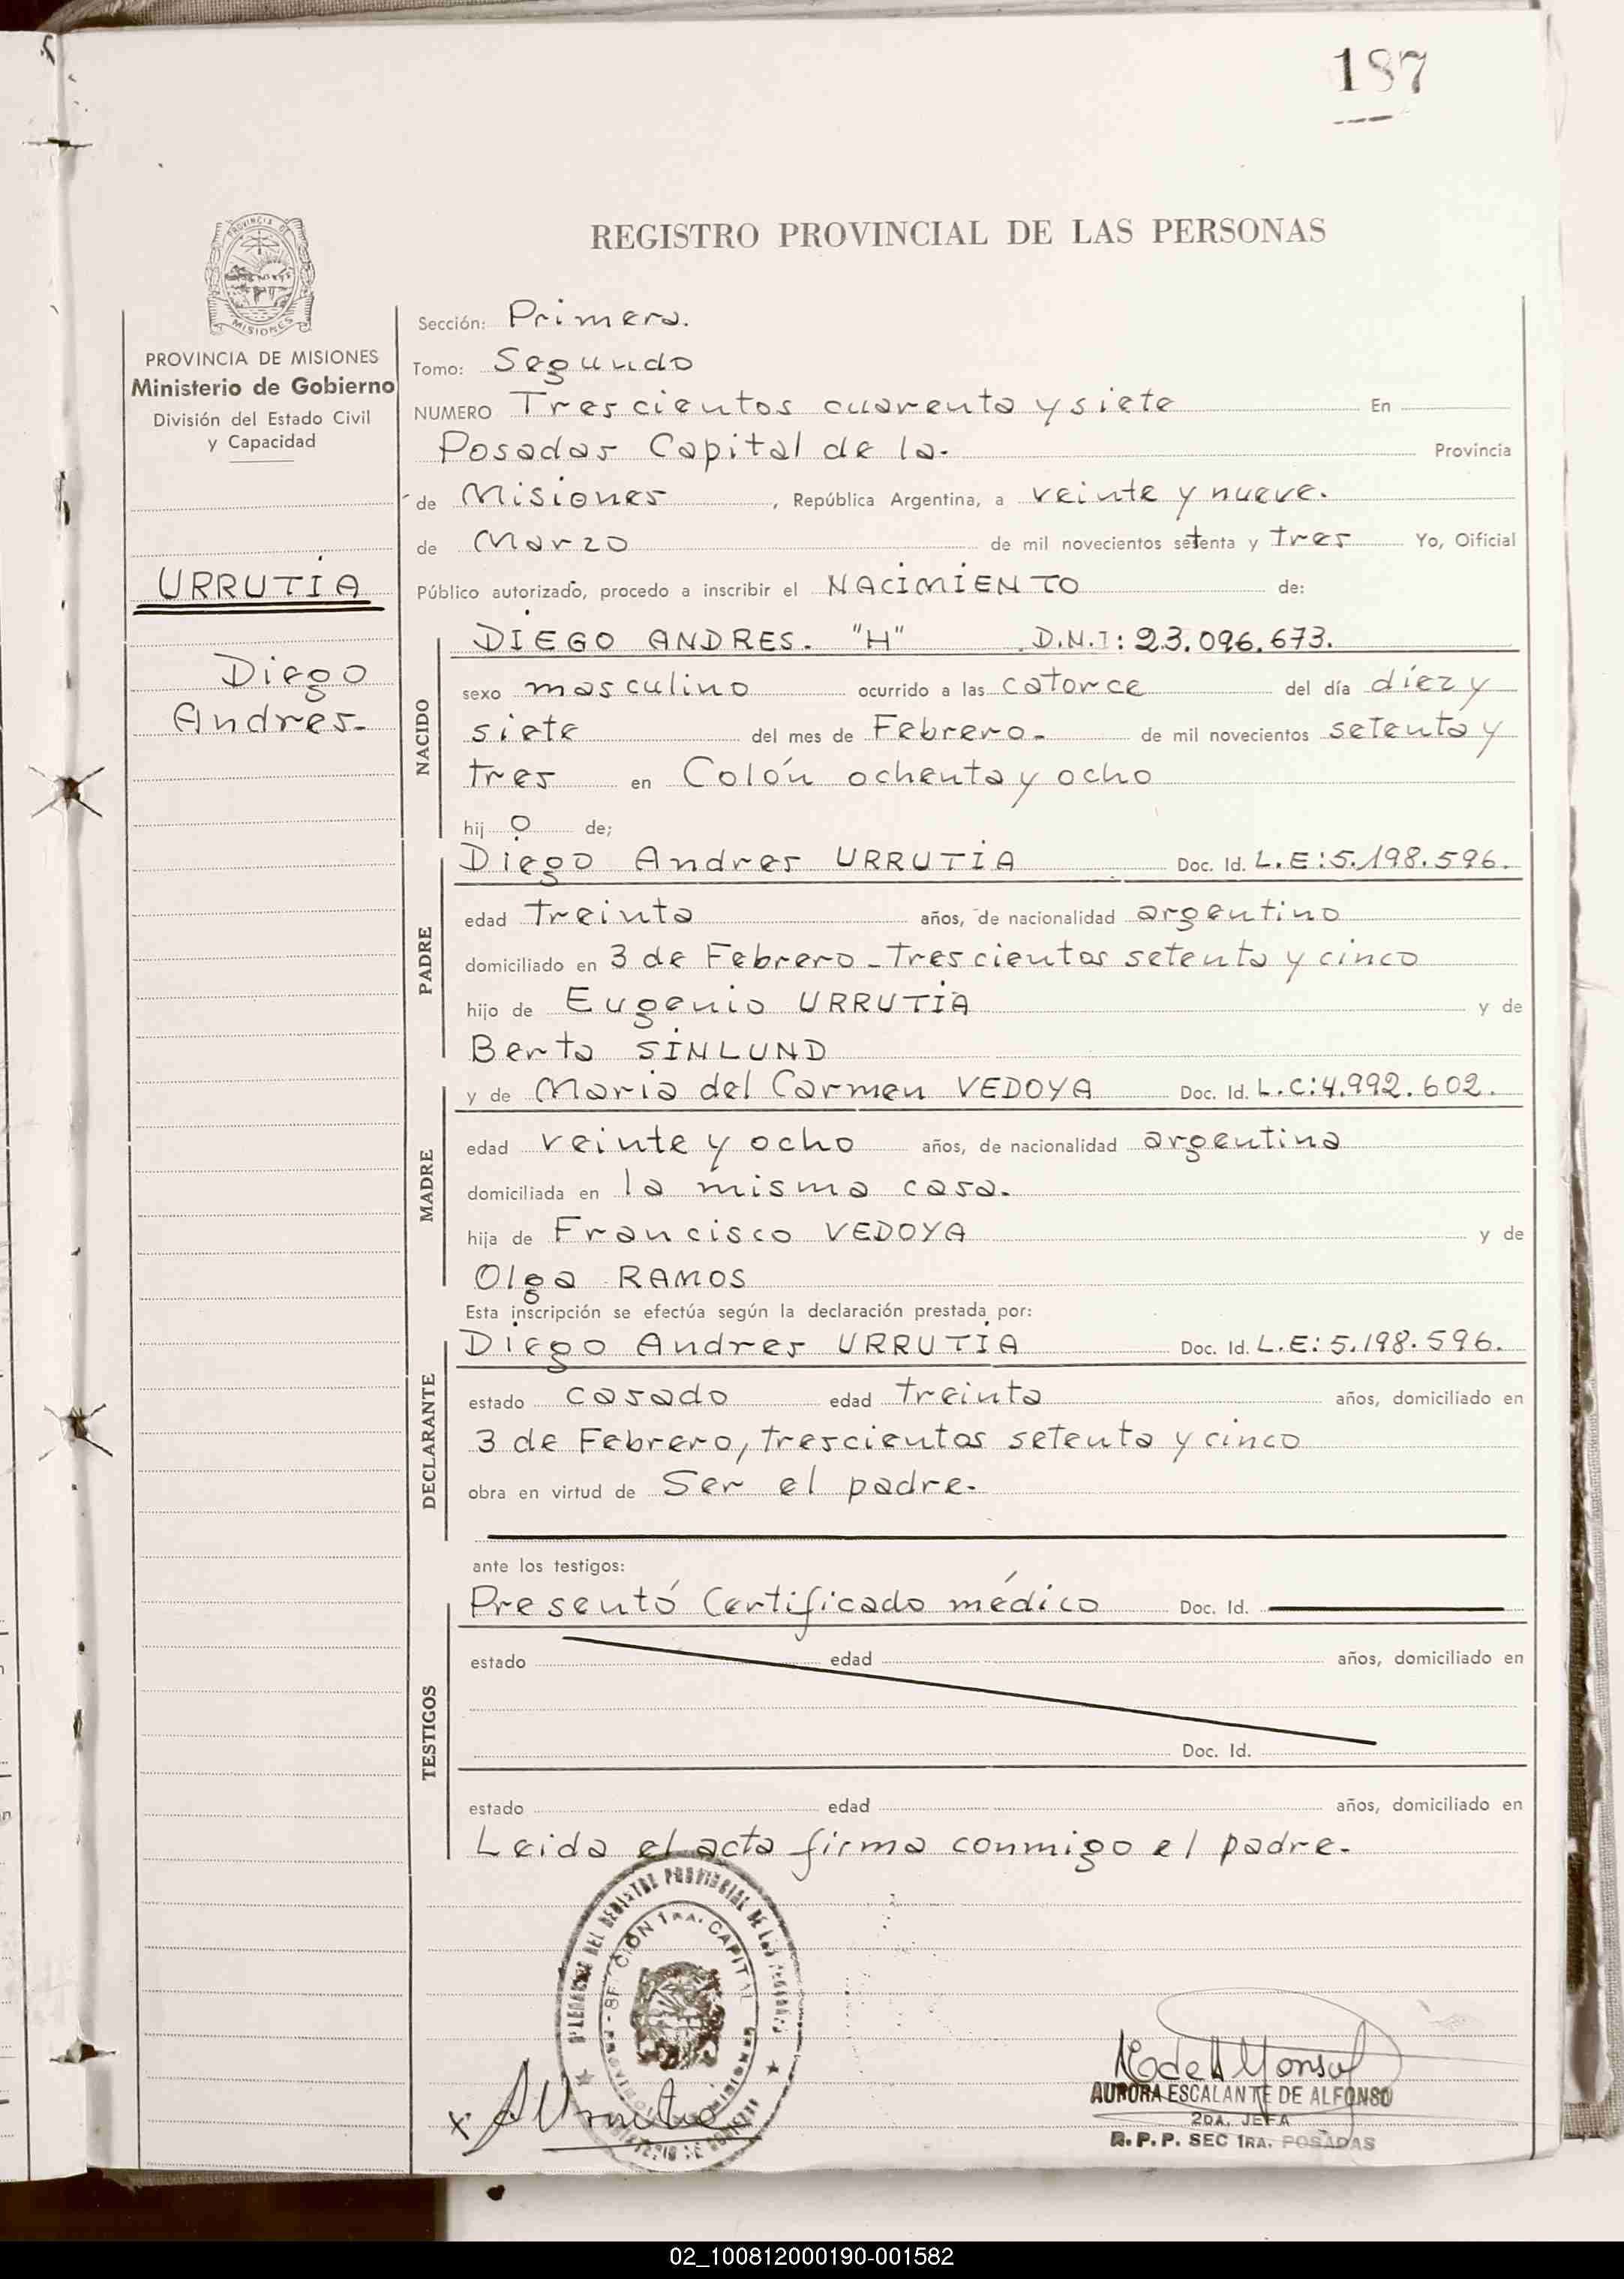 187
REGISTRO PROVINCIAL DE LAS PERSONAS
PROVINCIA DE
MISIONES
PROVINCIA DE MISIONES
Ministerio de Gobierno
División del Estado Civil
y Capacidad
URRUTIA
Diego
Andres.
Sección: Primera.
Tomo: Segundo
NUMERO Trescientos cuarenta y siete En
Posadas Capital de la. Provincia
de Misiones, República Argentina, a veinte y nueve.
de Marzo de mil novecientos setenta y tres Yo, Oificial
Público autorizado, procedo a inscribir el NACIMIENTO de:
NACIDO
DIEGO ANDRES. "H" D.N.I: 23.096.673.
sexo masculino ocurrido a las catorce del día diez y
siete del mes de Febrero. de mil novecientos setenta y
tres en Colón ochenta y ocho
hij o de;
PADRE
Diego Andres URRUTIA Doc. Id. L.E:5.198.596.
edad treinta años, de nacionalidad argentino
domiciliado en 3 de Febrero - Trescientos setenta y cinco
hijo de Eugenio URRUTIA y de
Berta SINLUND
MADRE
y de Maria del Carmen VEDOYA Doc. Id. L.C:4.992.602.
edad veinte y ocho años, de nacionalidad argentina
domiciliada en la misma casa.
hija de Francisco VEDOYA y de
Olga RAMOS
Esta inscripción se efectúa según la declaración prestada por:
DECLARANTE
Diego Andres URRUTIA Doc. Id. L.E:5.198.596.
estado casado edad treinta años, domiciliado en
3 de Febrero, trescientos setenta y cinco
obra en virtud de Ser el padre.
ante los testigos:
TESTIGOS
Presentó Certificado médico Doc. Id.
estado edad años, domiciliado en
Doc. Id.
estado edad años, domiciliado en
Leida el acta firma conmigo el padre.
DEL REGISTRO PROVINCIAL DE LAS
SECCION 1RA. CAPITAL
AURORA ESCALANTE DE ALFONSO
2DA. JEFA
R.P.P. SEC 1RA. POSADAS
02_100812000190-001582